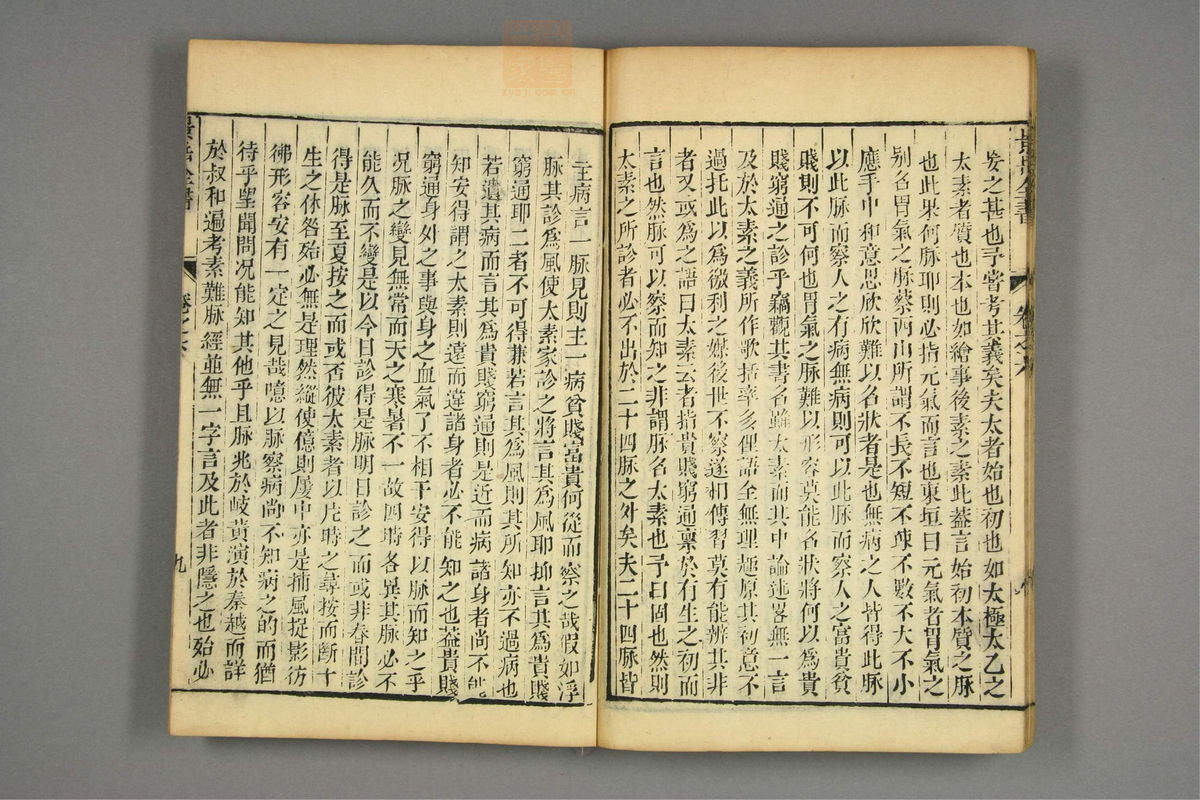 景岳全書
卷之六
妄之甚也予嘗考其義矣夫太者始也初也如太極太乙之
太素者質也本也如繪事後素之素此蓋言始初本質之脉
也此果何脉耶則必指元氣而言也東垣曰元氣者胃氣之
別名胃氣之脉蔡西山所謂不長不短不疎不數不大不小
應手中和意思欣欣難以名狀者是也無病之人皆得此脉
以此脉而察人之有病無病則可以此脉而察人之富貴貧
賤則不可何也胃氣之脉難以形容莫能名狀將何以為貴
賤窮通之診乎竊觀其書名雖太素而其中論述畧無一言
及於太素之義所作歌括率多俚語全無理趣原其初意不
過托此以為徼利之媒後世不察遂相傳習莫有能辨其非
者又或為之語曰太素云者指貴賤窮通稟於有生之初而
言也然脉可以察而知之非謂脉名太素也予曰固也然則
太素之所診者必不出於二十四脉之外矣夫二十四脉皆
主病言一脉見則主一病貧賤富貴何從而察之哉假如浮
脉其診為風使太素家診之將言其為風耶抑言其為貴賤
窮通耶二者不可得兼若言其為風則其所知亦不過病也
若遺其病而言其為貴賤窮通則是近而病諸身者尚不能
知安得謂之太素則遠而違諸身者必不能知之也蓋貴賤
窮通身外之事與身之血氣了不相干安得以脉而知之乎
况脉之變見無常而天之寒暑不一故四時各異其脉必不
能久而不變是以今日診得是脉明日診之而或非春間診
得是脉至夏按之而或否彼太素者以片時之尋按而斷十
生之休咎殆必無是理然縱使億則屢中亦是捕風捉影彷
彿形容安有一定之見哉噫以脉察病尚不知病之的而猶
待乎望聞問况能知其他乎且脉兆於岐黃演於秦越而詳
於叔和遍考素難脉經並無一字言及此者非隱之也殆必
景岳全書
卷之六
九